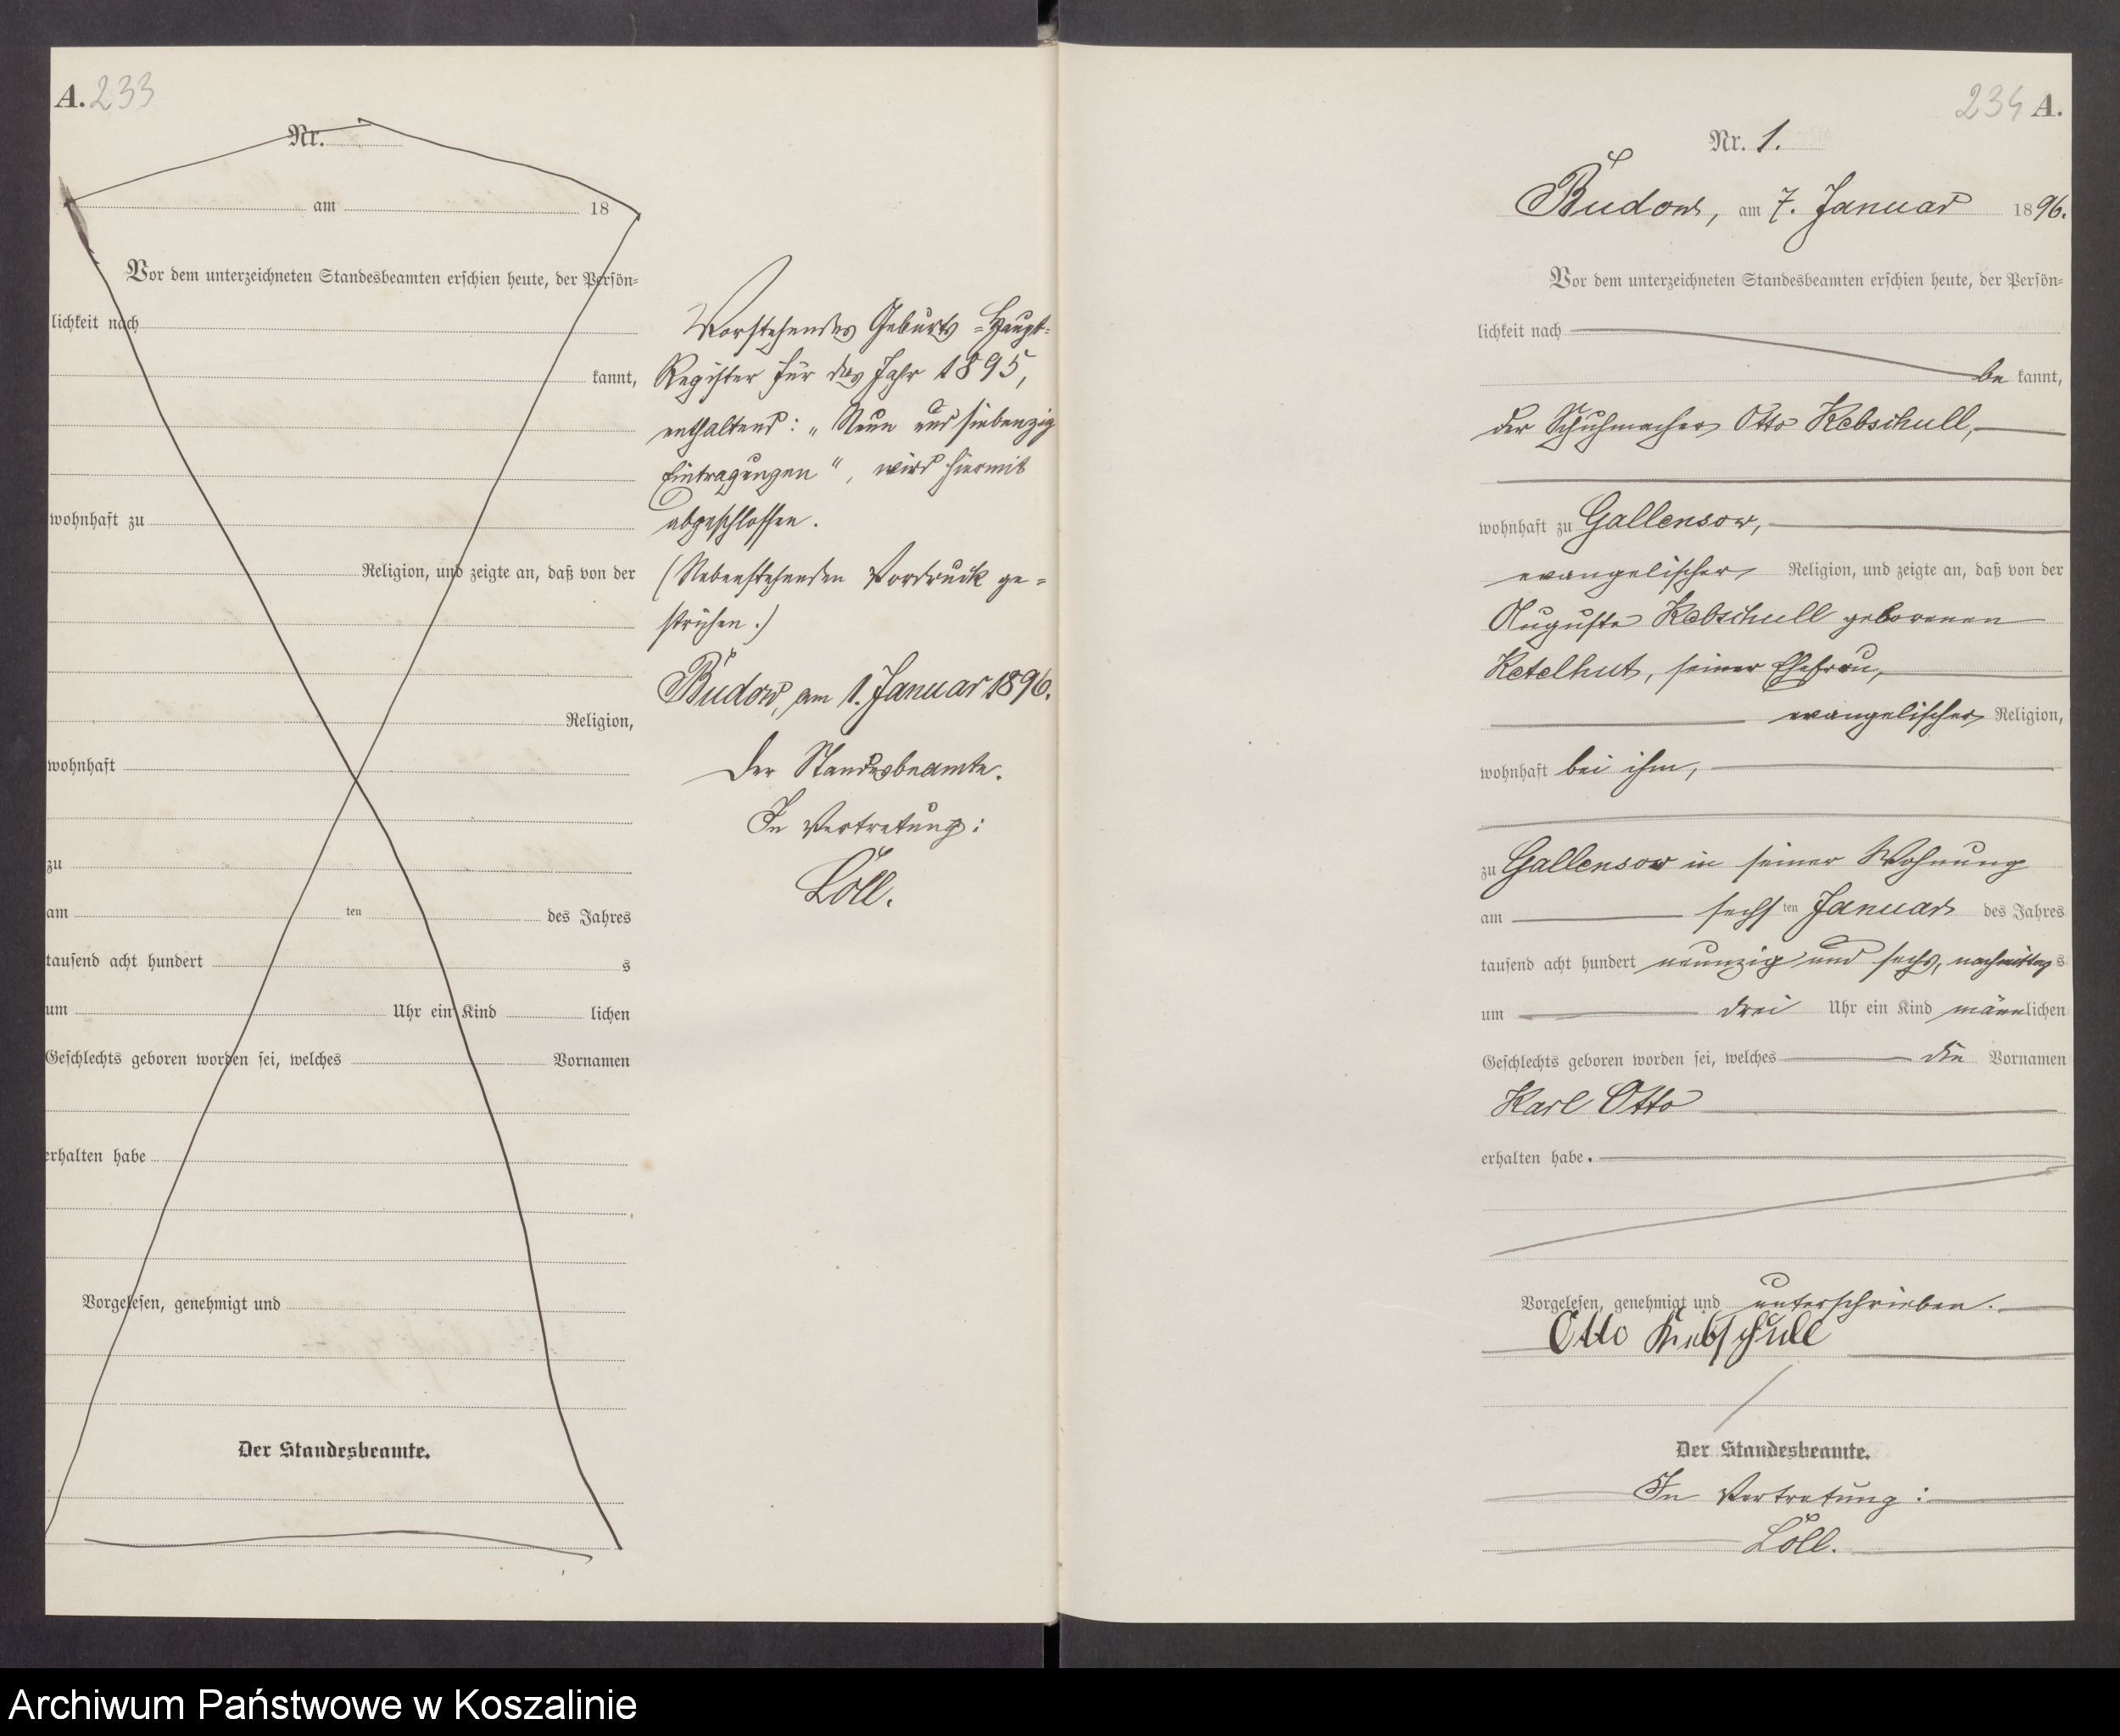 A. 233
Nr.
am 18
Vor dem unterzeichneten Standesbeamten erschien heute, der Persön-
lichkeit nach
kannt,
wohnhaft zu
Religion, und zeigte an, daß von der
Religion,
wohnhaft
zu
am ten des Jahres
tausend acht hundert s
um Uhr ein Kind lichen
Geschlechts geboren worden sei, welches Vornamen
erhalten habe
Vorgelesen, genehmigt und
Der Standesbeamte.
Vorstehendes Geburts-Haupt-
Register für das Jahr 1895,
enthaltend: „Neun und siebenzig
Eintragungen", wird hiermit
abgeschlossen.
(Nebenstehenden Vordruck ge-
strichen.)
Budow, am 1. Januar 1896.
Der Standesbeamte.
In Vertretung:
Löll.
234 A.
Nr. 1.
Budow, am 7. Januar 1896.
Vor dem unterzeichneten Standesbeamten erschien heute, der Persön-
lichkeit nach
be kannt,
der Schuhmacher Otto Kebschull,
wohnhaft zu Gallensow,
evangelischer Religion, und zeigte an, daß von der
Auguste Kebschull geborenen
Ketelhut, seiner Ehefrau,
evangelischer Religion,
wohnhaft bei ihm,
zu Gallensow in seiner Wohnung
am sechs ten Januar des Jahres
tausend acht hundert neunzig und sechs, nachmittags
um drei Uhr ein Kind männlichen
Geschlechts geboren worden sei, welches die Vornamen
Karl Otto
erhalten habe.
Vorgelesen, genehmigt und unterschrieben.
Otto Kebschull
Der Standesbeamte.
In Vertretung:
Löll.
Archiwum Państwowe w Koszalinie